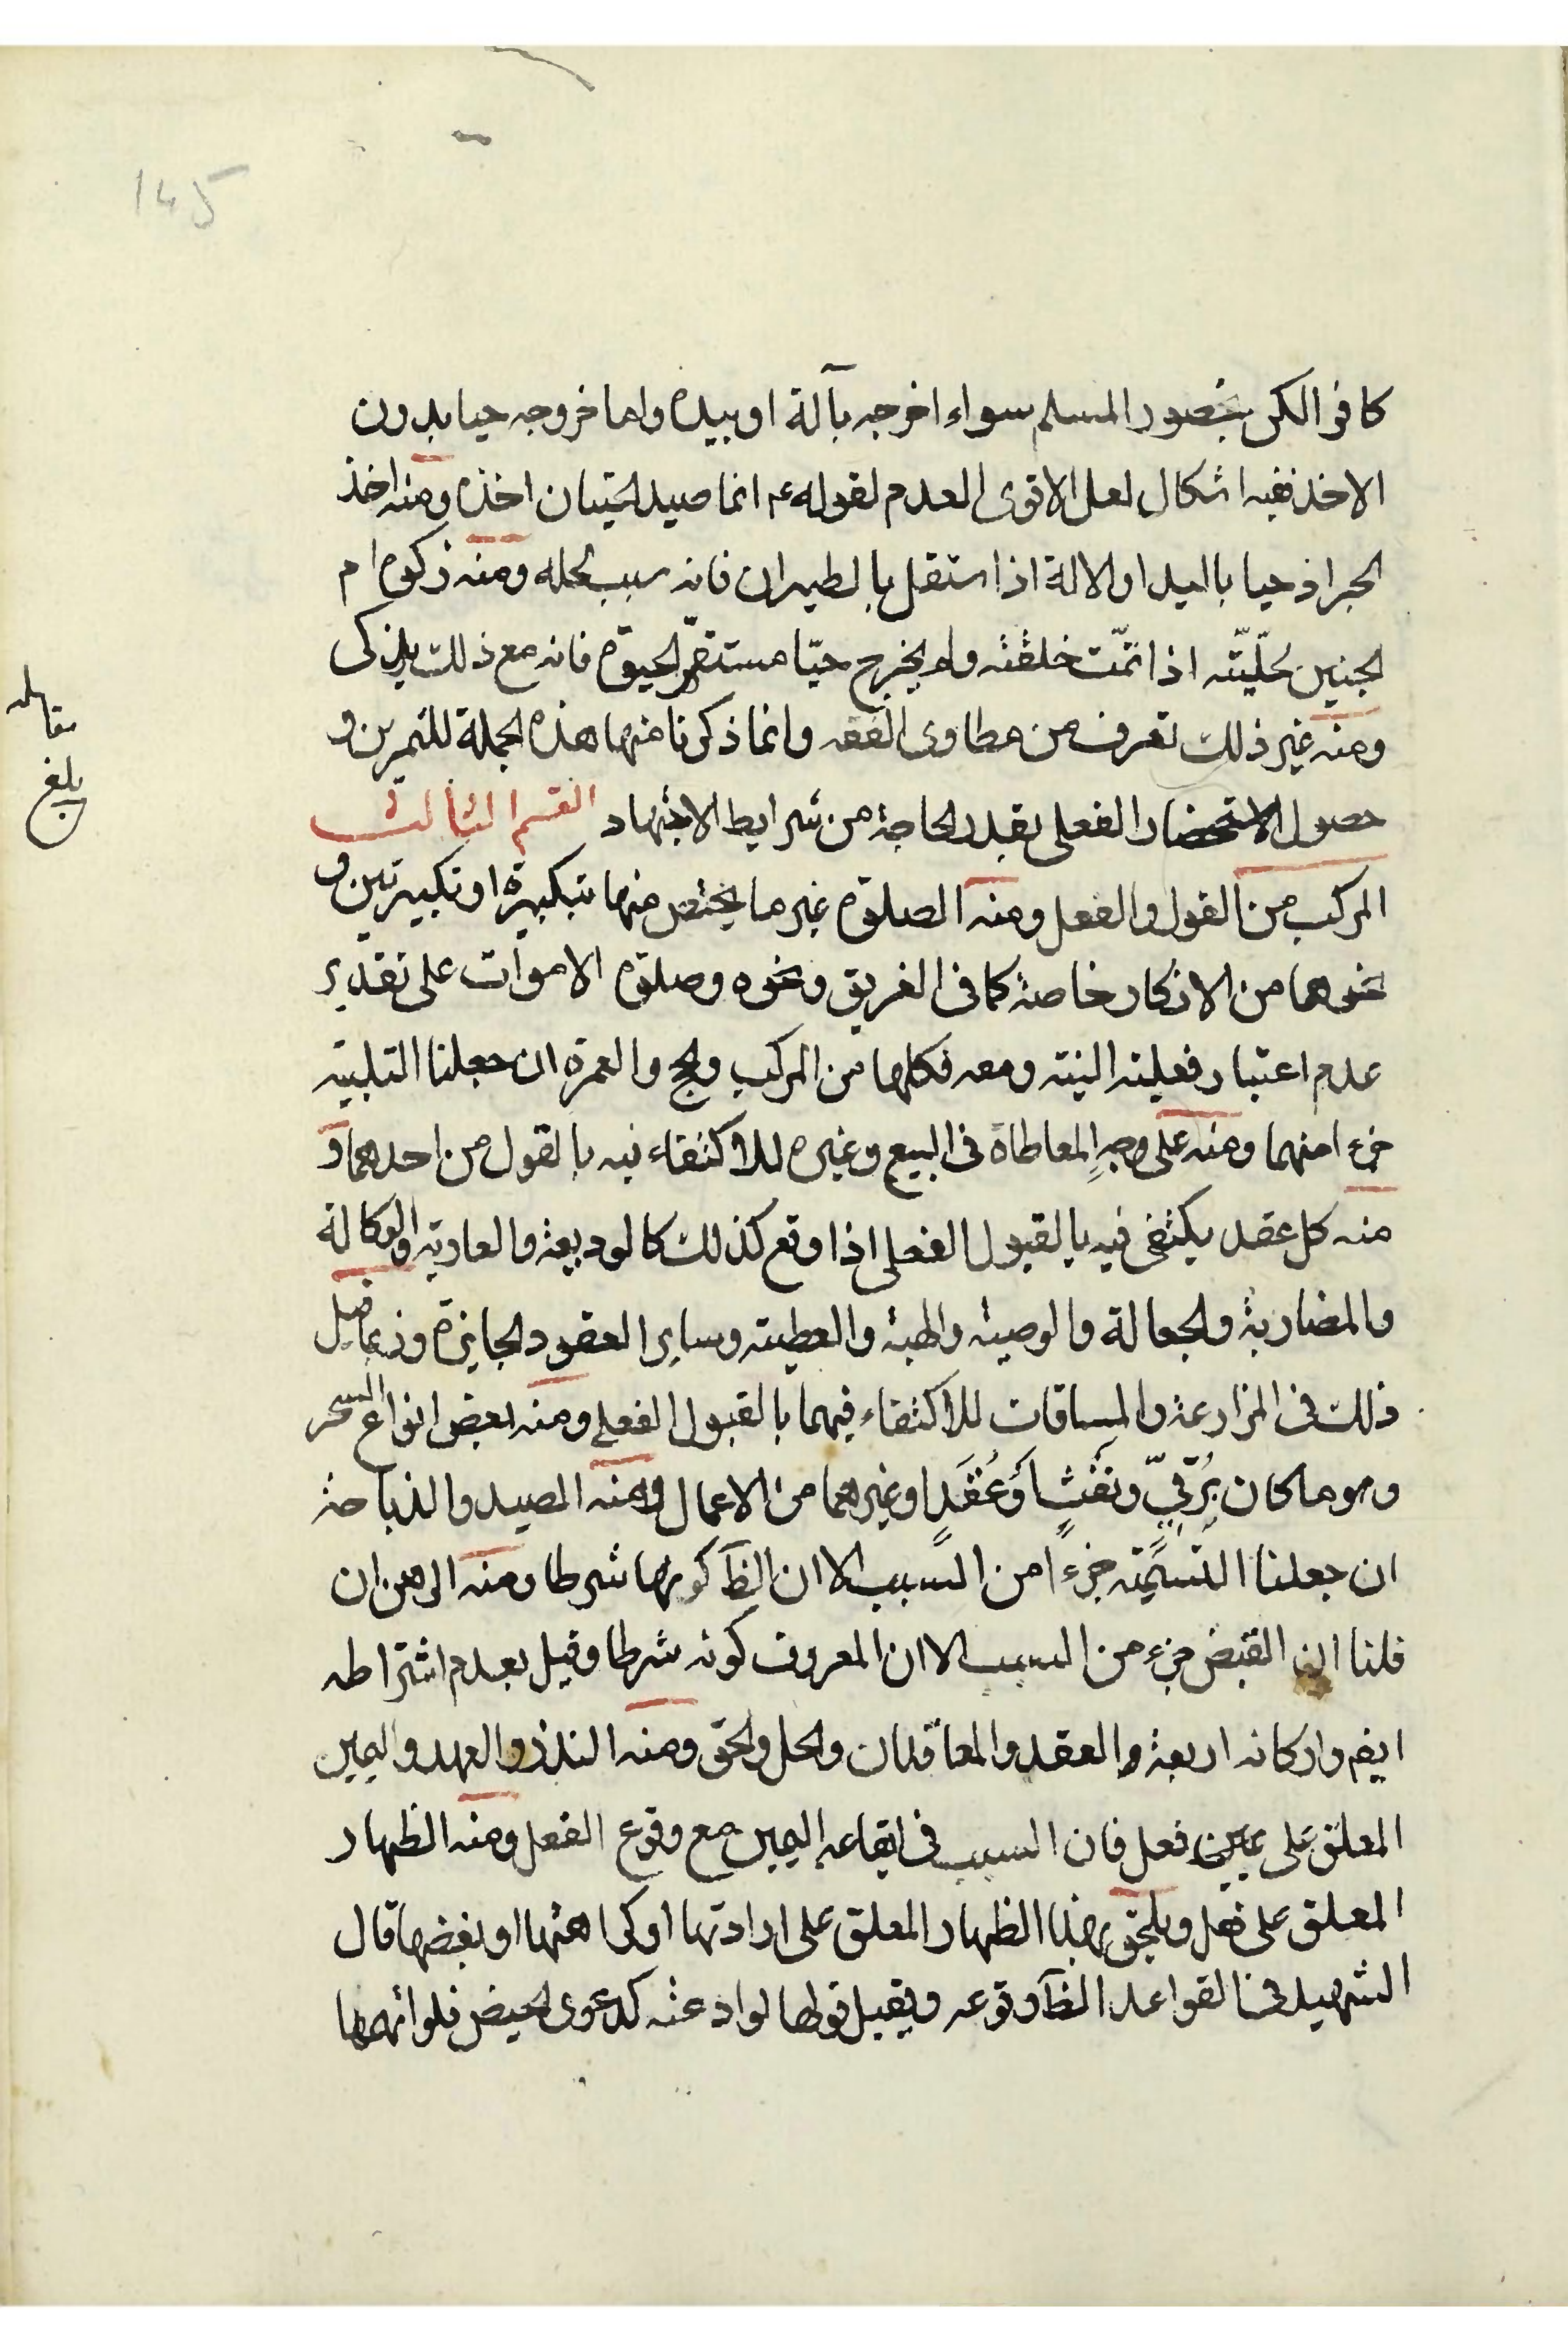 145
كافر الكن بحضور المسلم سواء اخرجه بآلة او بيده واما خروجه حيا بدون
الاخذ ففيه اشكال لعل الاقوى العدم لقوله ع انما صيد الحيتان اخذه ومنه اخذ
الجراد حيا باليد او الالة اذا استقل بالطيران فانه سبب لحله ومنه ذكوة ام
الجنين لحلّيّته اذا تمّت خلقته ولم يخرج حيّا مستقرّ الحيوة فانه مع ذلك يذكى
ومنه غير ذلك تعرف من مطاوى الفقه وانما ذكرنا منها هذه الجملة للتمرين و
حصول الاستحضار الفعلى بقدر الحاجة من شرايط الاجتهاد القسم الثالث
المركب من القول والفعل ومنه الصلوة غير ما يختص منها بتكبيرة او تكبيرتين و
نحوهما من الاذكار خاصة كما فى الغريق ونحوه وصلوة الاموات على تقدير
عدم اعتبار فعلية النية ومعه فكلها من المركب والحج والعمرة ان جعلنا التلبية
جزءا منهما ومنه على وجهٍ المعاطاة فى البيع وغيره للاكتفاء فيه بالقول من احدهما و
منه كل عقد يكتفى فيه بالقبول الفعلى اذا وقع كذلك كالوديعة والعارية والوكالة
والمضاربة والجعالة والوصية والهبة والعطية وساير العقود الجايزة وربما قيل
ذلك فى المزارعة والمساقات للاكتفاء فيهما بالقبول الفعلى ومنه بعض انواع السحر
وهو ما كان بُرقيٍّ ونَفَثٍ اَوعُقَدٍ او غيرهما من الاعمال ومنه الصيد والذباحة
ان جعلنا التسمية جزءا من السبب الا ان الظَ كونها شرطا ومنه الرهن ان
قلنا ان القبض جزء من السبب الا ان المعروف كونه شرطا وقيل بعدم اشتراطه
ايضم واركانه اربعة العقد والمعاقدان والمحل والحق ومنه النذر والعهد واليمين
المعلق على فعل فان السبب فى ايقاعه اليمين مع وقوع الفعل ومنه الظهار
المعلق على فعل ويلحق بهذا الظهار المعلق على ارادتها او كراهتها او بغضها قال
الشهيد فى القواعد الظَ وقوعه ويقبل قولها لو ادعته كدعوى الحيض فلو اتهمها
مقابله
بلغ